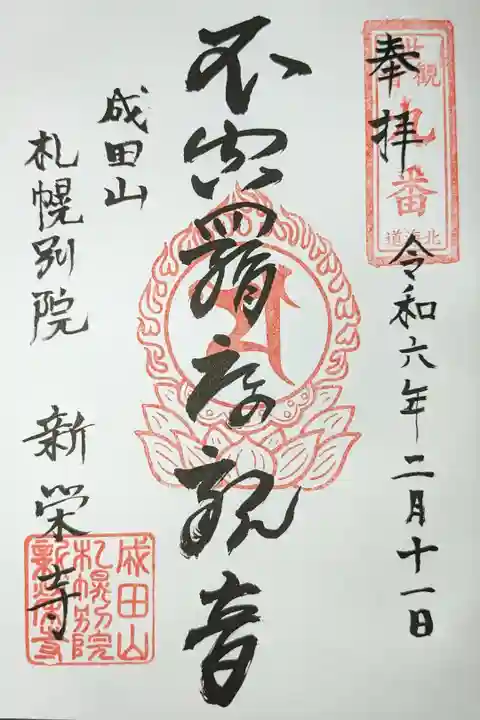 奉拝
観音
九番
北海道
令和六年二月十一日
不空羂索観音
成田山
札幌別院 新栄寺
成田山
札幌別院
新栄寺